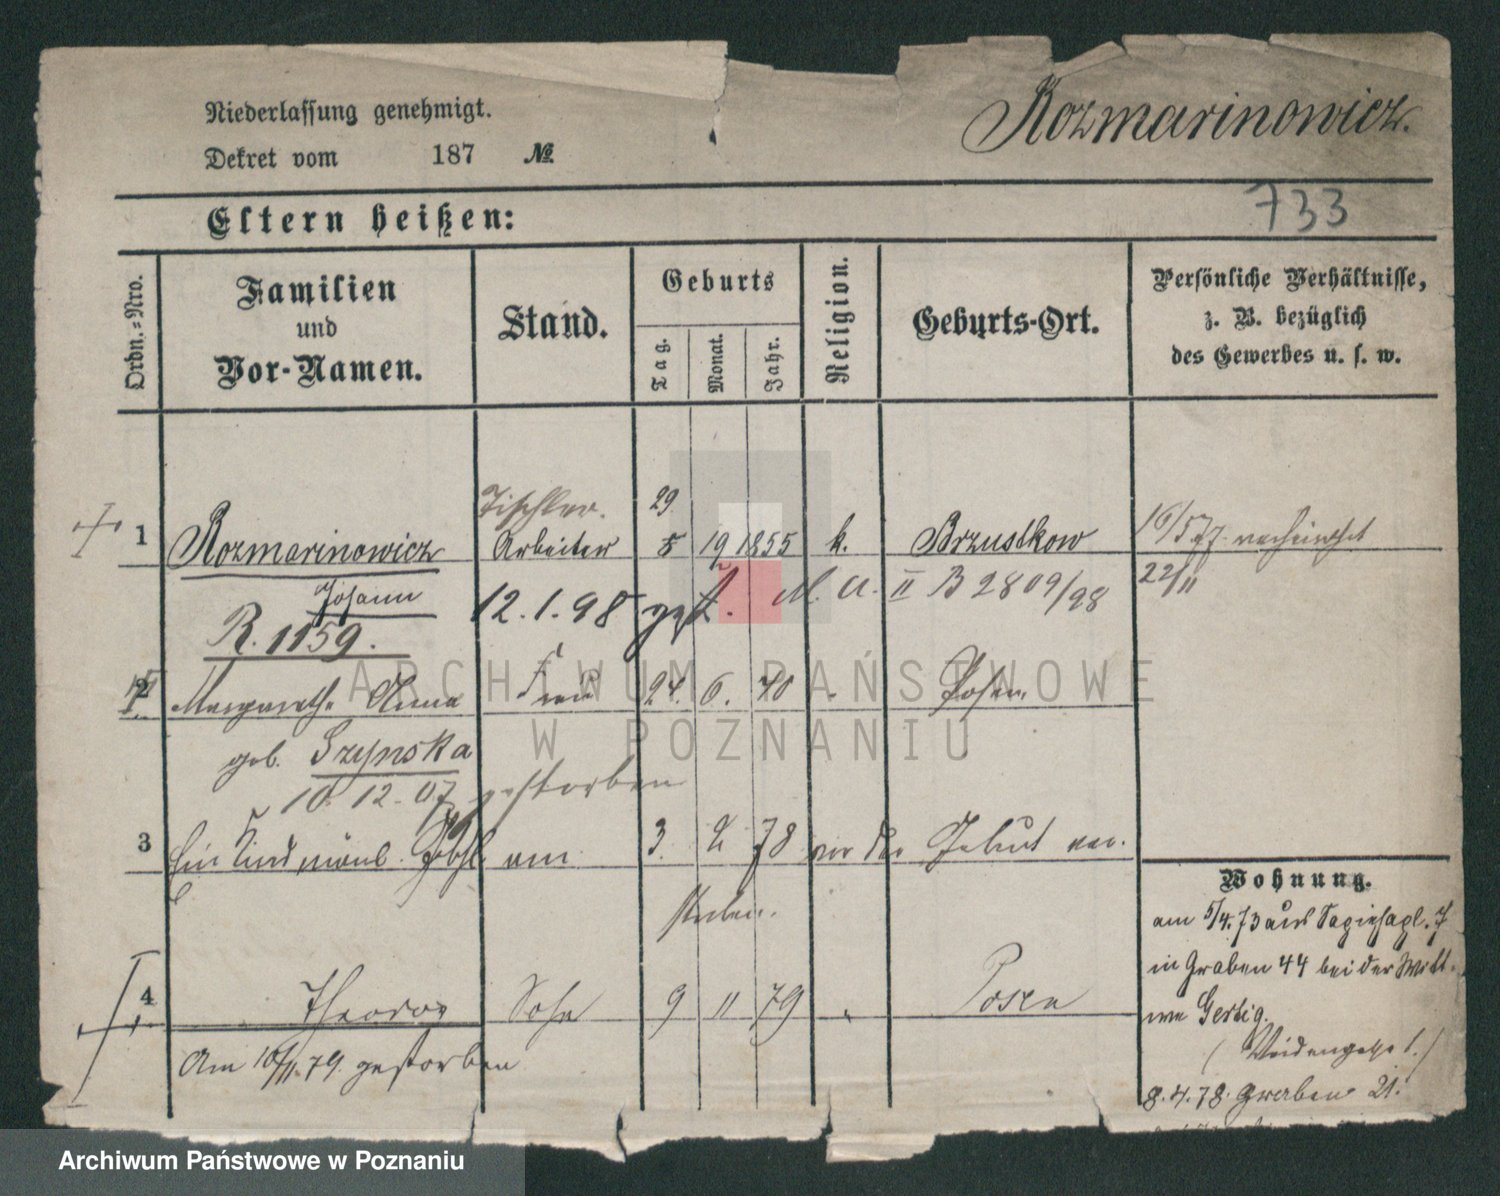 Niederlassung genehmigt.
Dekret vom 187 №
Rozmarinowicz.
733
Eltern heißen:
Ordn.-Nro.
Familien
und
Vor-Namen.
Stand.
Geburts
Tag.
Monat.
Jahr.
Religion.
Geburts-Ort.
Persönliche Verhältnisse,
z. B. bezüglich
des Gewerbes u. s. w.
Tischler.
29
1 Rozmarinowicz Arbeiter 5 19 1855 k. Brzustkow
16/5 77. verheirathet
22/11
Johann
12.1.98 gest. M. A. II B 2809/98
R. 1159.
2 Margarethe Anna Frau 24. 6. 40 Posen
geb. Szynska
10.12.07 gestorben
3 Ein Kind männl. Gschl. am 3. 2 78 vor der Geburt ver-
storben.
4 Theodor Sohn 9 11 79 Posen
Am 10/11.79. gestorben
Wohnung.
am 5/4.73 aus Sapiehapl. 7
in Graben 44 bei der Witt-
we Gersig.
(Weidengasse 1.)
8.4.78. Graben 21.
ARCHIWUM PAŃSTWOWE
W POZNANIU
Archiwum Państwowe w Poznaniu